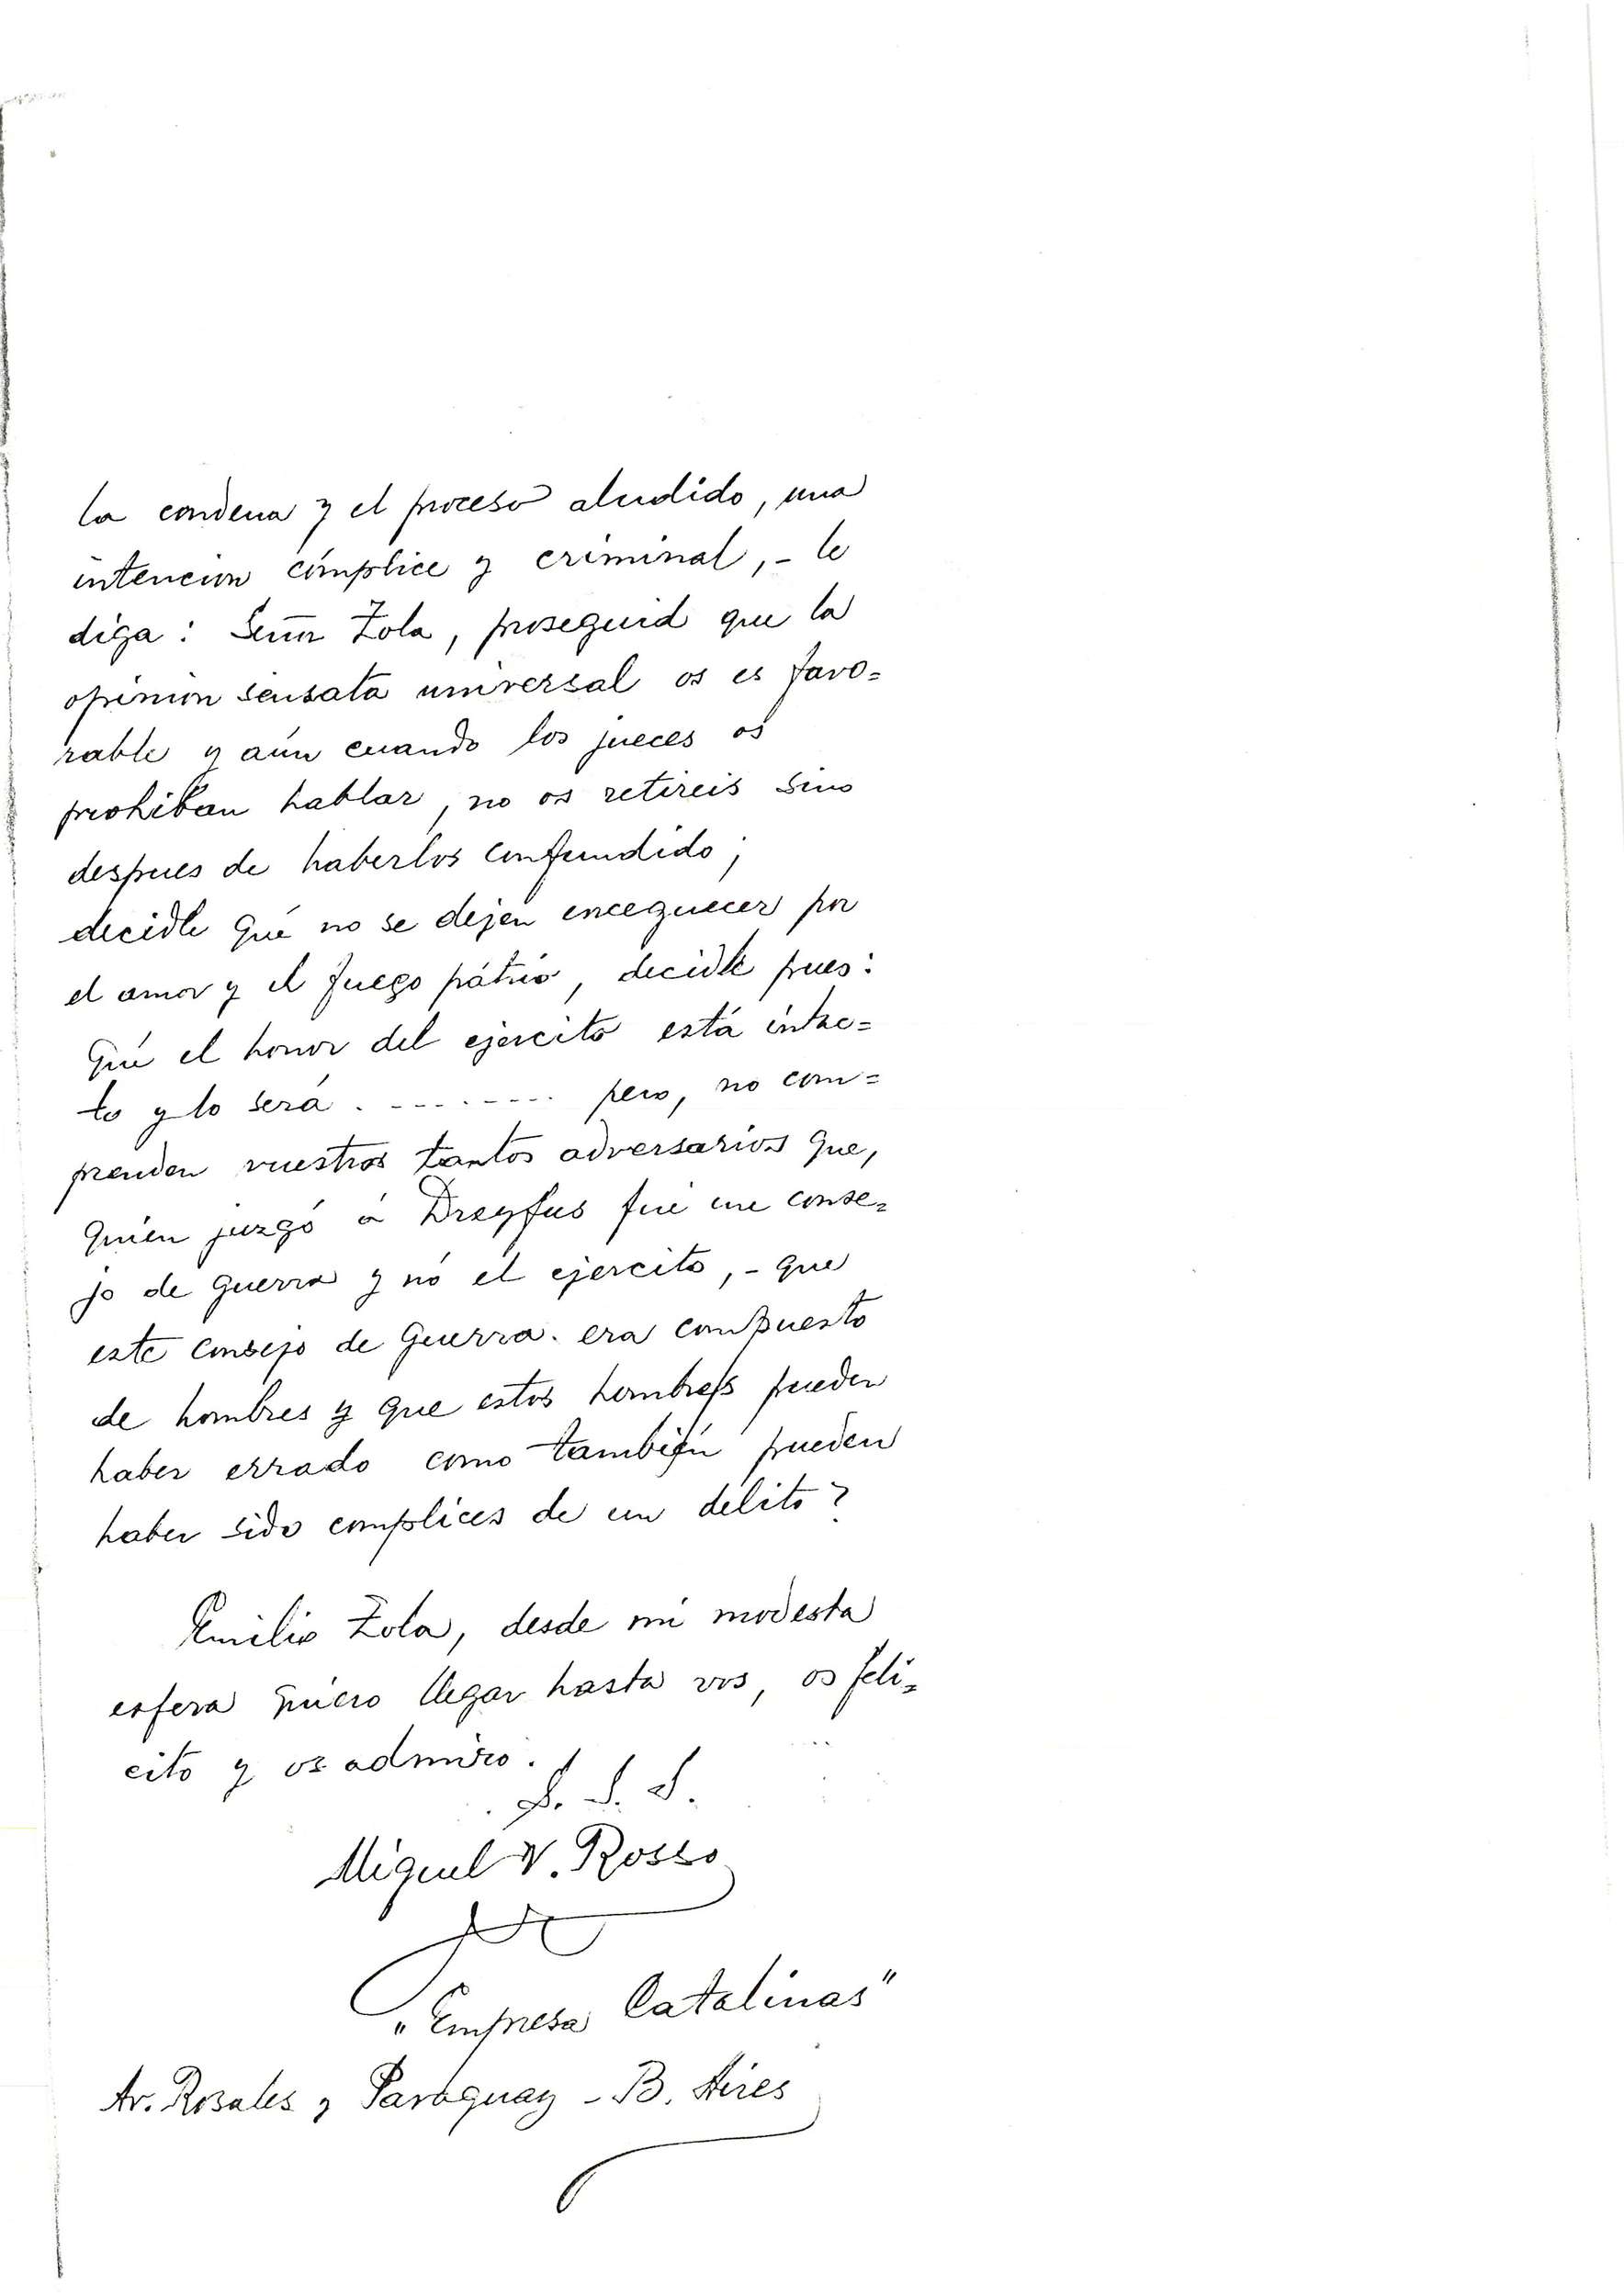 la condena y el proceso aludido, una
intencion cómplice y criminal, - le
diga: Señor Zola, proseguid que la
opinion sensata universal os es favo=
rable y aún cuando los jueces os
prohiban hablar, no os retireis sino
despues de haberlos confundido;
decidle que no se dejen enceguecer por
el amor y el fuego pátrio, decidle pues:
Que el honor del ejercito está intac=
to y lo será . - - - . - - - . pero, no com=
prenden vuestros tantos adversarios que,
quien juzgó á Dreyfus fué un conse=
jo de guerra y nó el ejercito, - que
este Consejo de Guerra era compuesto
de hombres y que estos hombres pueden
haber errado como también pueden
haber sido complices de un délito?
Emilio Zola, desde mi modesta
esfera quiero llegar hasta vos, os feli=
cito y os admiro.
S. S. S.
Miguel V. Rosso
"Empresa Catalinas"
Av. Rosales y Paraguay - B. Aires